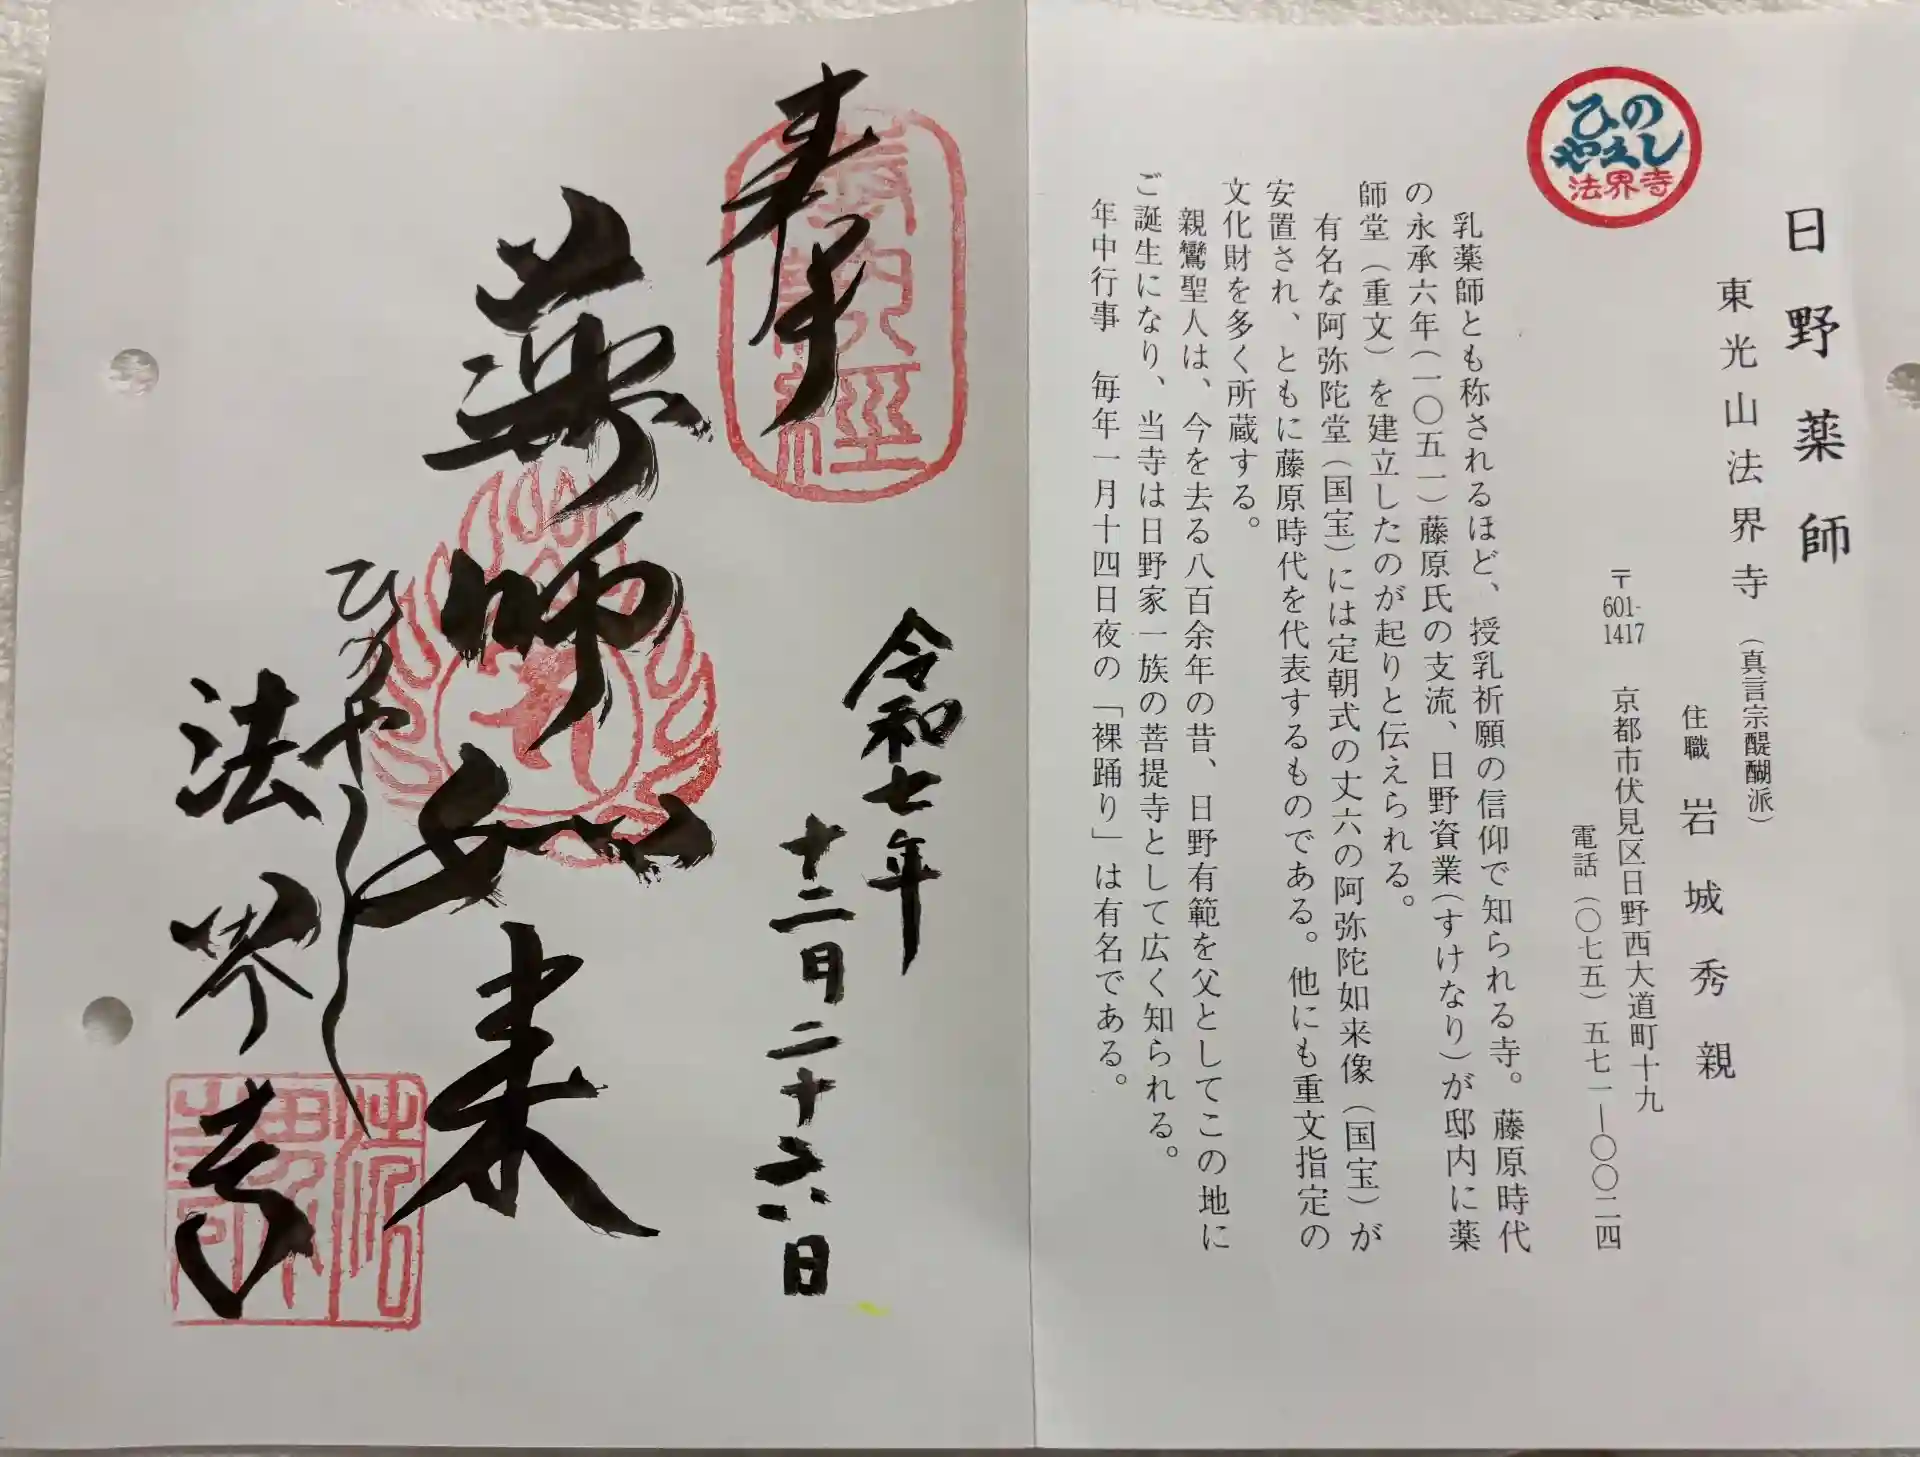 ひの
やくし
法界寺
日野薬師
東光山法界寺（真言宗醍醐派）
住職 岩城秀親
〒601-1417 京都市伏見区日野西大道町十九
電話（〇七五）五七一―〇〇二四
乳薬師とも称されるほど、授乳祈願の信仰で知られる寺。藤原時代
の永承六年（一〇五一）藤原氏の支流、日野資業（すけなり）が邸内に薬
師堂（重文）を建立したのが起りと伝えられる。
有名な阿弥陀堂（国宝）には定朝式の丈六の阿弥陀如来像（国宝）が
安置され、ともに藤原時代を代表するものである。他にも重文指定の
文化財を多く所蔵する。
親鸞聖人は、今を去る八百余年の昔、日野有範を父としてこの地に
ご誕生になり、当寺は日野家一族の菩提寺として広く知られる。
年中行事 毎年一月十四日夜の「裸踊り」は有名である。
奉
令和七年
十二月二十六日
薬師如来
ひのやくし
法界寺